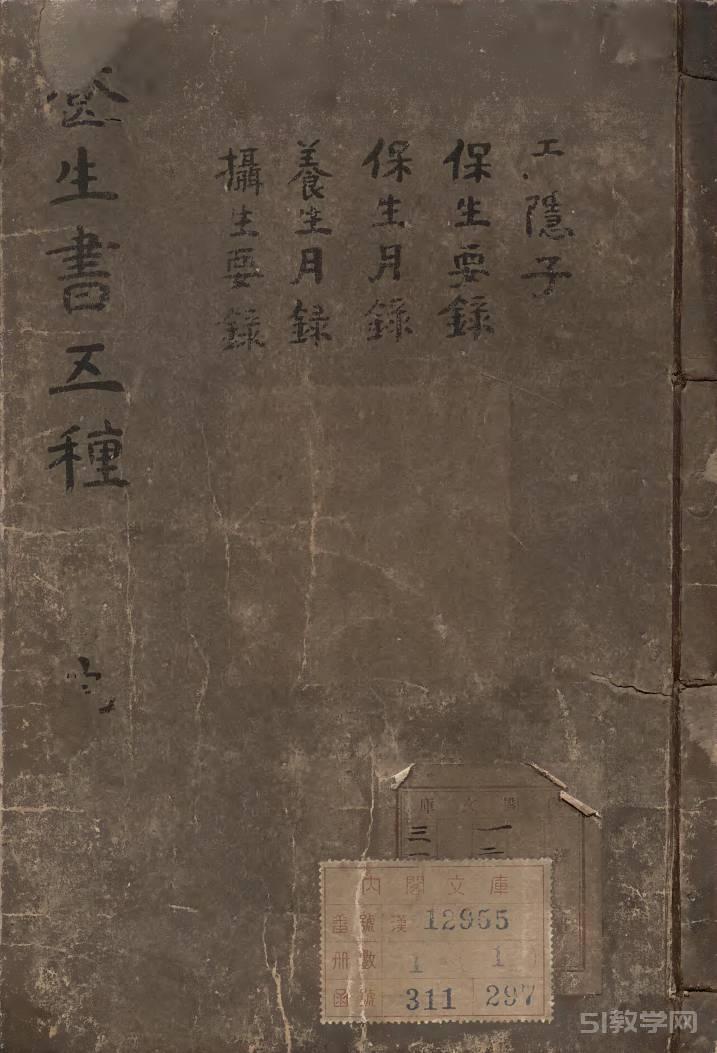 隱子
保生要錄
保生月錄
養生月録
攝生要錄
生書五種
閣文庫
內閣文庫
番號 漢 12955
冊數 1 1
函號 311 297
51教学网